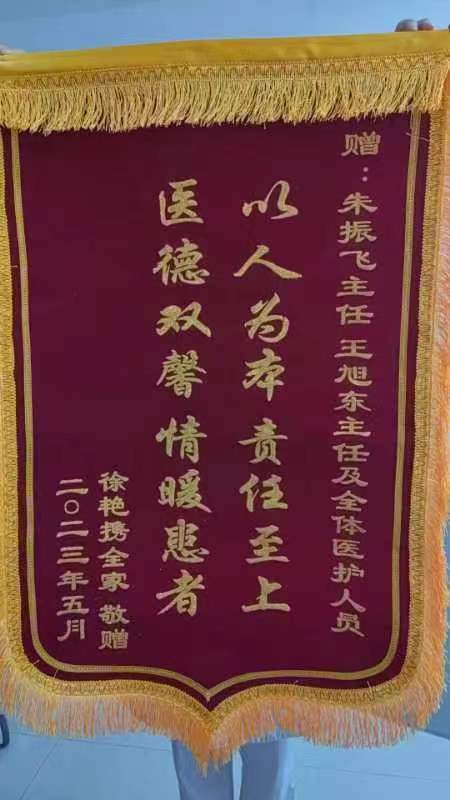 赠：朱振飞主任王旭东主任及全体医护人员
以人为本责任至上
医德双馨情暖患者
徐艳携全家 敬赠
二〇二三年五月